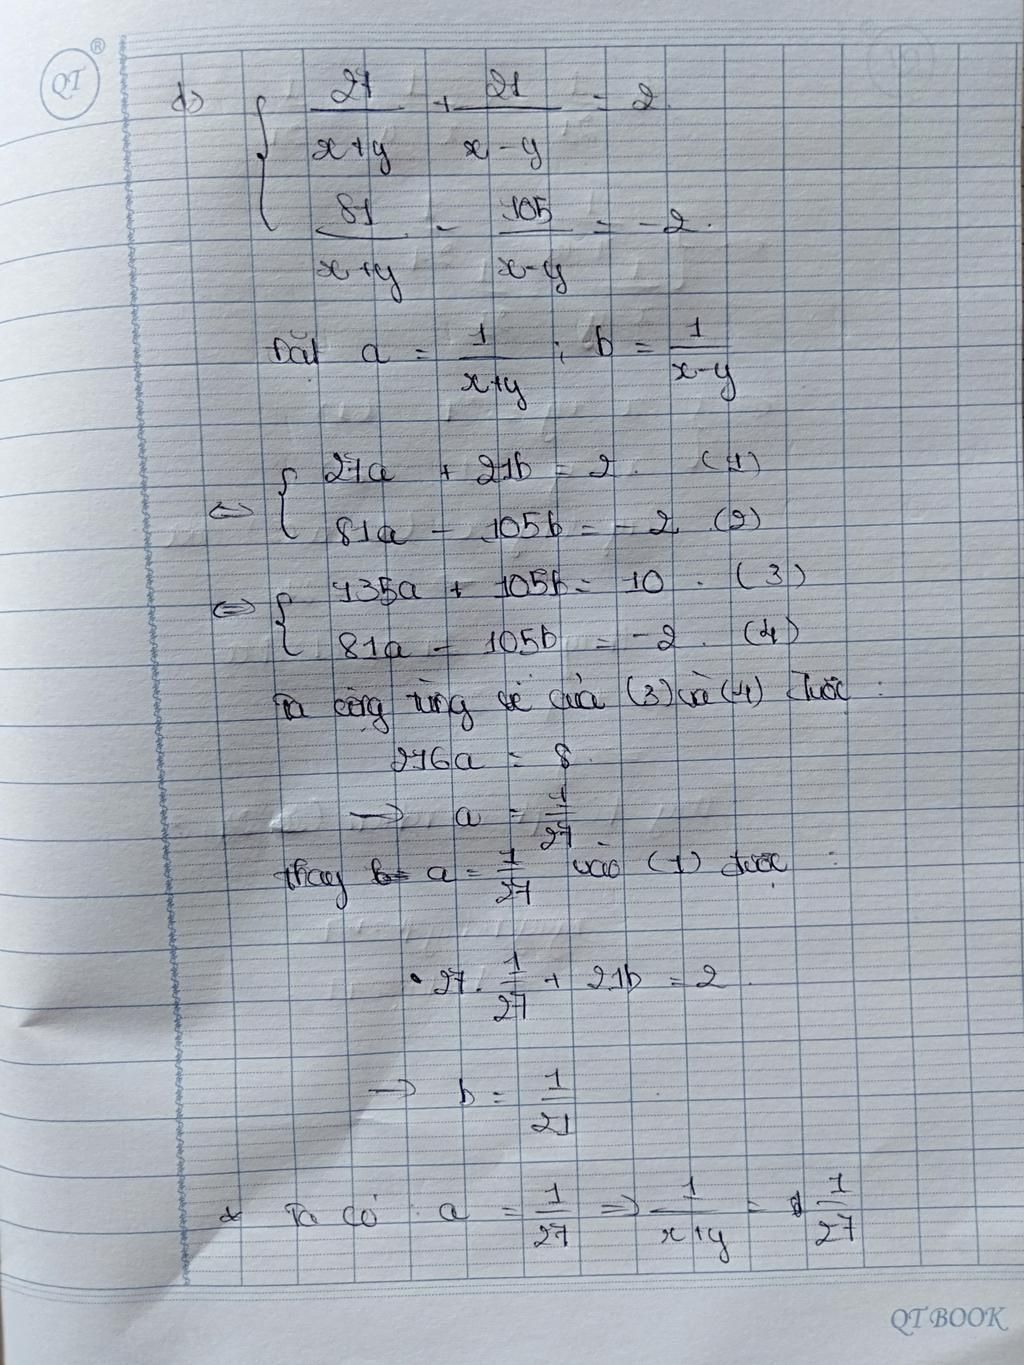 QT ®
d) { 27/(x+y) + 21/(x-y) = 2.
81/(x+y) - 105/(x-y) = -2.
Đặt a = 1/(x+y) ; b = 1/(x-y)
<=> { 27a + 21b = 2. (1)
81a - 105b = -2 (2)
<=> { 135a + 105b = 10. (3)
81a - 105b = -2. (4)
Ta cộng từng vế của (3) và (4) được :
216a = 8.
-> a = 1/27
Thay a = 1/27 vào (1) được :
• 27. 1/27 + 21b = 2.
-> b = 1/21
* Ta có : a = 1/27 => 1/(x+y) = 1/27
QT BOOK